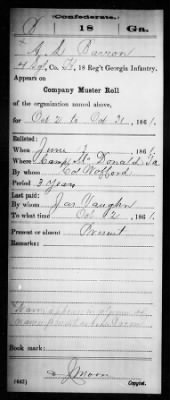 Confederate.
18 Ga.
Barron
Co. K, 18 Reg't Georgia Infantry.
Appears on
Company Muster Roll
of the organization named above,
for Oct 2 to Oct 31, 1861.
Enlisted:
When June 13, 1861.
Where Camp McDonald Ga
By whom Col Wofford
Period 3 Years
Last paid:
By whom Jas Vaughn
To what time Oct 2, 1861.
Present or absent Present
Remarks:
Book mark:
J Moon
(642) Copyist.